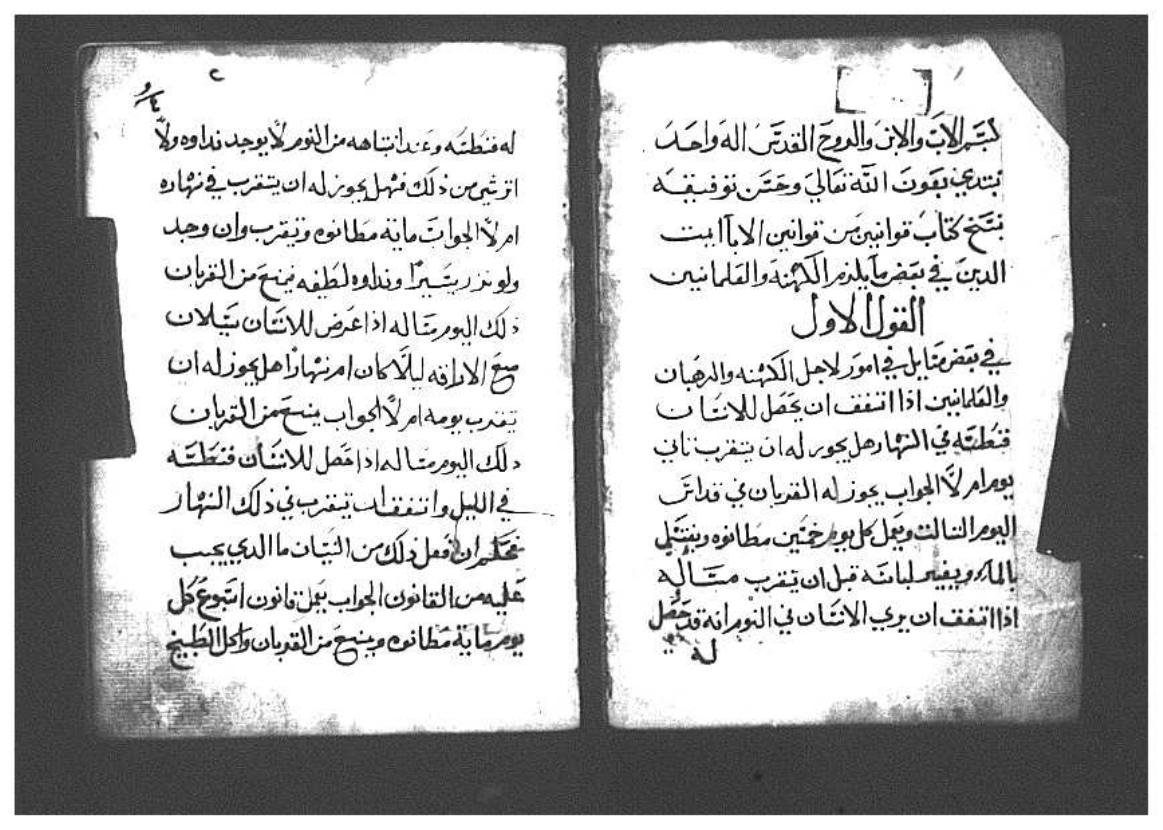 بسم الاب والابن والروح القدس اله واحد
نبتدي بعون الله تعالي وحسن توفيقه
بنسخ كتاب قوانين من قوانين الابا ايمت
الدين في بعض ما يلزم الكهنه والعلمانيين
القول الاول
في بعض مسايل في امور لاجل الكهنه والرهبان
والعلمانيين اذا اتفق ان يحصل للانسان
فنطسه في النهار هل يجوز له ان يتقرب تاني
يوم ام لا الجواب يجوز له القربان في قداس
اليوم التالت ويعمل كل يوم خمسين مطانوه ويغتسل
بالماء ويغير لباسه قبل ان يتقرب مساله
اذا اتفق ان يري الانسان في النوم انه قد حصل
له
٢
له فنطسه وعند انتباهه من النوم لا يوجد نداوه ولا
اتر شي من ذلك فهل يجوز له ان يتقرب في نهاره
ام لا الجواب ماية مطانوه ويتقرب وان وجد
ولو نذر يسيرا ونداوه لطيفه يمنع من القربان
ذلك اليوم مساله اذا عرض للانسان سيلان
مع الاراقه ليلا كان ام نهارا هل يجوز له ان
يتقرب يومه ام لا الجواب يمنع من القربان
ذلك اليوم مساله اذا حصل للانسان فنطسه
في الليل واتفق انه يتقرب في ذلك النهار
فعل ذلك من النسيان ما الدي يجب
عليه من القانون الجواب يعمل قانون اسبوع كل
يوم ماية مطانوه ويمنع من القربان واكل الطبيخ